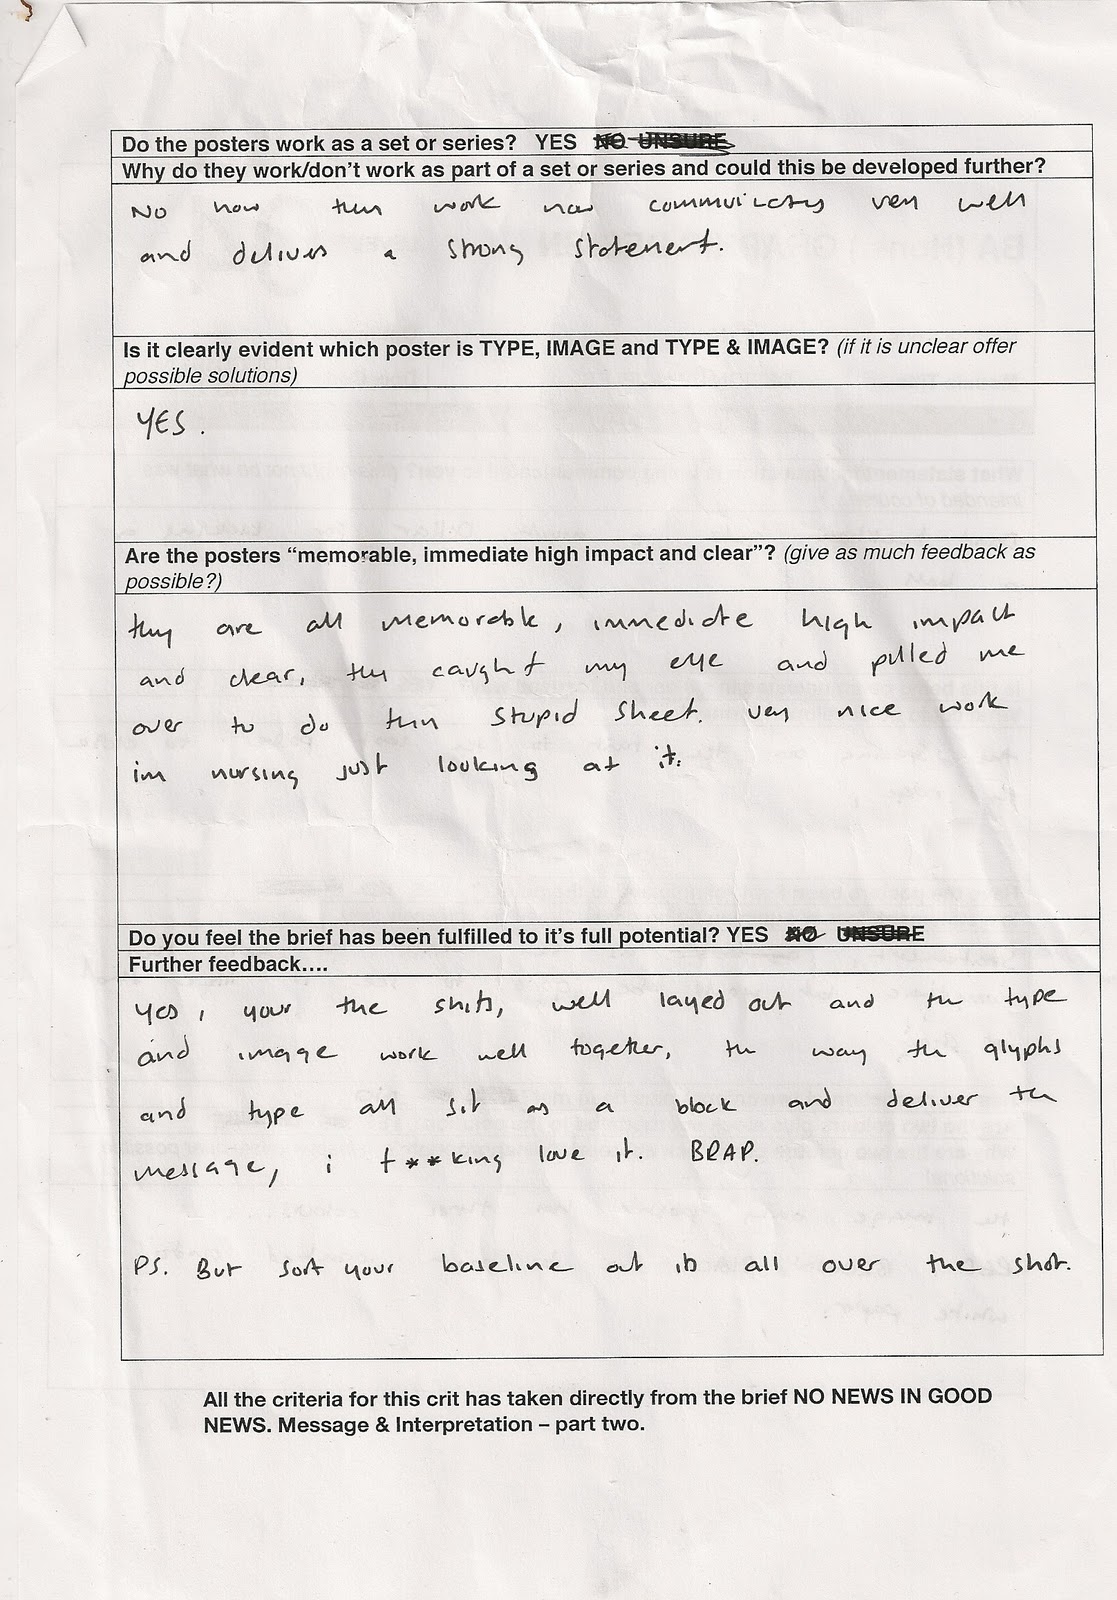 Do the posters work as a set or series? YES NO UNSURE
Why do they work/don't work as part of a set or series and could this be developed further?
No now they work now communicates very well
and delivers a strong statement.
Is it clearly evident which poster is TYPE, IMAGE and TYPE & IMAGE? (if it is unclear offer
possible solutions)
YES.
Are the posters “memorable, immediate high impact and clear”? (give as much feedback as
possible?)
they are all memorable, immediate high impact
and clear, they caught my eye and pulled me
over to do this stupid sheet. very nice work
im nursing just looking at it.
Do you feel the brief has been fulfilled to it's full potential? YES NO UNSURE
Further feedback....
Yes, your the shits, well layed out and the type
and image work well together, the way the glyphs
and type all sit as a block and deliver the
message, i f**king love it. BRAP.
PS. But sort your baseline out its all over the shot.
All the criteria for this crit has taken directly from the brief NO NEWS IN GOOD
NEWS. Message & Interpretation – part two.